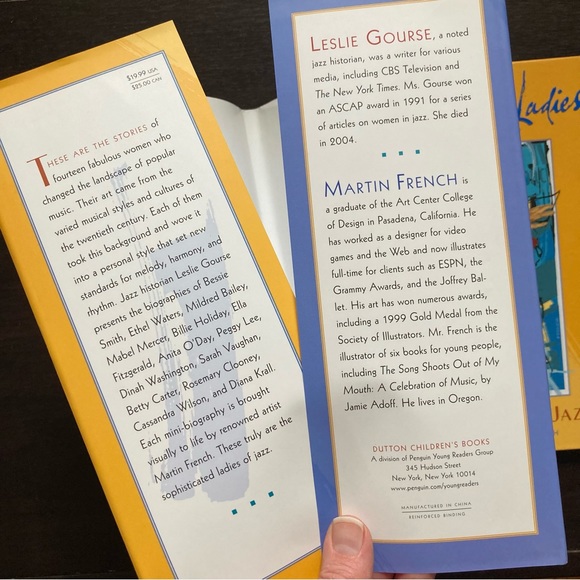 $19.99 USA
$25.00 CAN
THESE ARE THE STORIES of
fourteen fabulous women who
changed the landscape of popular
music. Their art came from the
varied musical styles and cultures of
the twentieth century. Each of them
took this background and wove it
into a personal style that set new
standards for melody, harmony, and
rhythm. Jazz historian Leslie Gourse
presents the biographies of Bessie
Smith, Ethel Waters, Mildred Bailey,
Mabel Mercer, Billie Holiday, Ella
Fitzgerald, Anita O'Day, Peggy Lee,
Dinah Washington, Sarah Vaughan,
Betty Carter, Rosemary Clooney,
Cassandra Wilson, and Diana Krall.
Each mini-biography is brought
visually to life by renowned artist
Martin French. These truly are the
sophisticated ladies of jazz.
LESLIE GOURSE, a noted
jazz historian, was a writer for various
media, including CBS Television and
The New York Times. Ms. Gourse won
an ASCAP award in 1991 for a series
of articles on women in jazz. She died
in 2004.
MARTIN FRENCH is
a graduate of the Art Center College
of Design in Pasadena, California. He
has worked as a designer for video
games and the Web and now illustrates
full-time for clients such as ESPN, the
Grammy Awards, and the Joffrey Bal-
let. His art has won numerous awards,
including a 1999 Gold Medal from the
Society of Illustrators. Mr. French is the
illustrator of six books for young people,
including The Song Shoots Out of My
Mouth: A Celebration of Music, by
Jamie Adoff. He lives in Oregon.
DUTTON CHILDREN'S BOOKS
A division of Penguin Young Readers Group
345 Hudson Street
New York, New York 10014
www.penguin.com/youngreaders
MANUFACTURED IN CHINA
REINFORCED BINDING
Ladies